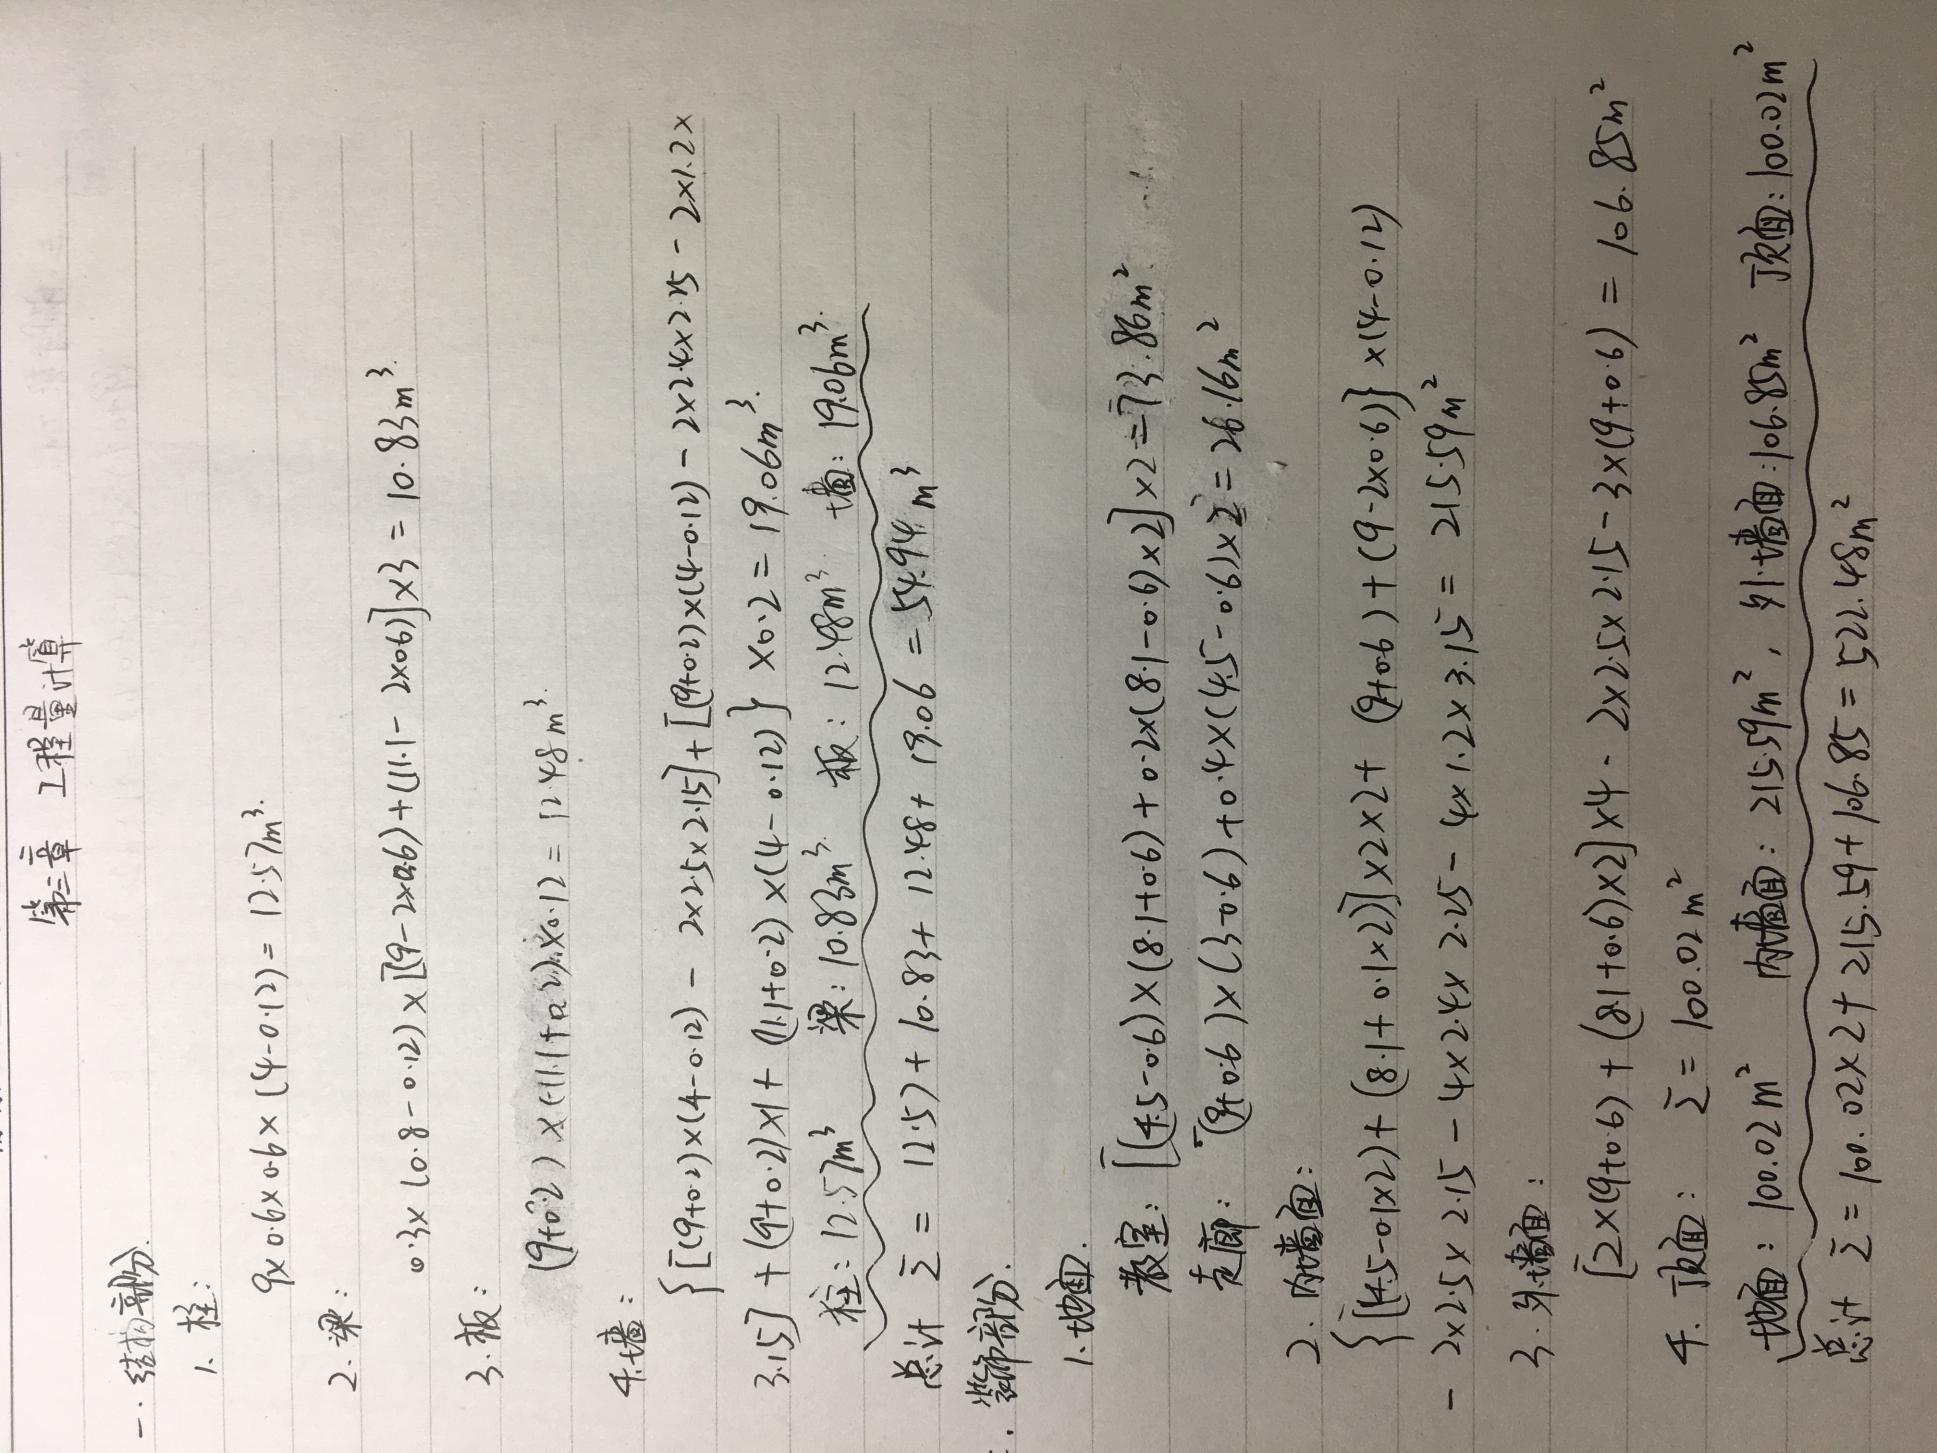 第三章 工程量计算
一.结构部份.
1.柱:
9×0.6×0.6×(4-0.12)=12.57m³.
2.梁:
0.3×(0.8-0.12)×[(9-2×0.6)+(11.1-2×0.6)]×3=10.83m³.
3.板:
(9+0.2)×(11.1+0.2)×0.12=12.48m³.
4.墙:
{[(9+0.2)×(4-0.12)-2×2.5×2.15]+[(9+0.2)×(4-0.12)-2×2.4×2.25-2×1.2×
3.15]+(9+0.2)×1+(11.1+0.2)×(4-0.12)}×0.2=19.06m³.
柱:12.57m³ 梁:10.83m³. 板:12.48m³. 墙:19.06m³.
总计 Σ=12.57+10.83+12.48+19.06=54.94m³
装饰部分.
1.地面.
教室:[(4.5-0.6)×(8.1+0.6)+0.2×(8.1-0.6)×2]×2=73.86m²
走廊:(9+0.6)×(3-0.6)+0.4×(4.5-0.6)×2=26.16m²
2.内墙面:
{[(4.5-0.1×2)+(8.1+0.1×2)]×2×2+(9+0.6)+(9-2×0.6)}×(4-0.12)
-2×2.5×2.15-4×2.4×2.25-4×1.2×3.15=215.59m²
3.外墙面:
[2×(9+0.6)+(8.1+0.6)×2]×4-2×2.5×2.15-3×(9+0.6)=106.85m²
4.顶面: Σ=100.02m²
地面:100.02m² 内墙面:215.59m², 外墙面:106.85m² 顶面:100.02m²
总计 Σ=100.02×2+215.59+106.85=522.48m²